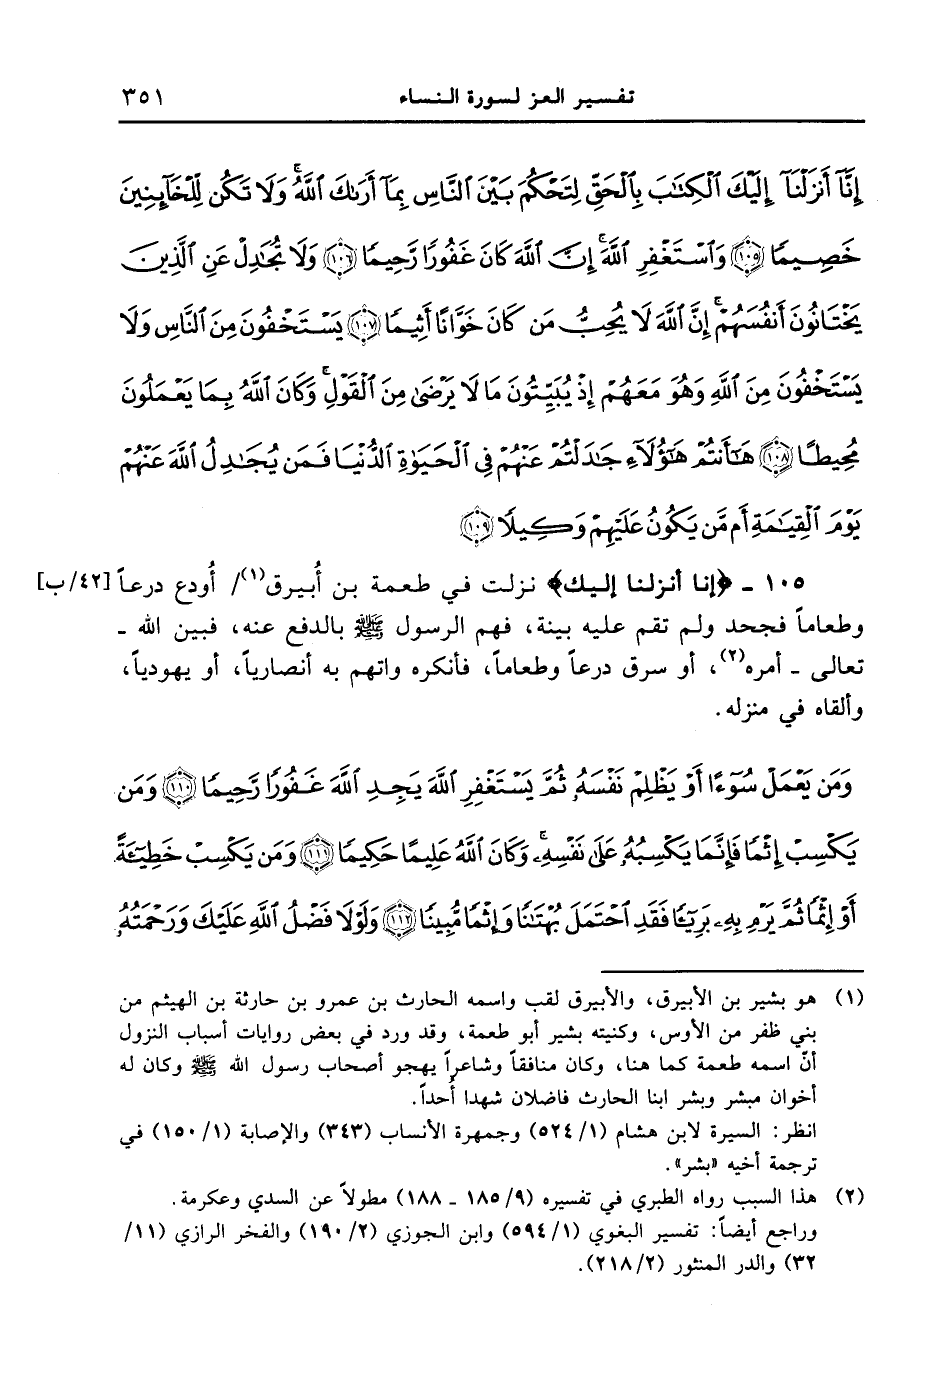 تفسير العز لسورة النساء ٣٥١
إِنَّآ أَنزَلْنَآ إِلَيْكَ ٱلْكِتَٰبَ بِٱلْحَقِّ لِتَحْكُمَ بَيْنَ ٱلنَّاسِ بِمَآ أَرَىٰكَ ٱللَّهُ ۚ وَلَا تَكُن لِّلْخَآئِنِينَ
خَصِيمًا ﴿١٠٥﴾ وَٱسْتَغْفِرِ ٱللَّهَ ۖ إِنَّ ٱللَّهَ كَانَ غَفُورًا رَّحِيمًا ﴿١٠٦﴾ وَلَا تُجَٰدِلْ عَنِ ٱلَّذِينَ
يَخْتَانُونَ أَنفُسَهُمْ ۚ إِنَّ ٱللَّهَ لَا يُحِبُّ مَن كَانَ خَوَّانًا أَثِيمًا ﴿١٠٧﴾ يَسْتَخْفُونَ مِنَ ٱلنَّاسِ وَلَا
يَسْتَخْفُونَ مِنَ ٱللَّهِ وَهُوَ مَعَهُمْ إِذْ يُبَيِّتُونَ مَا لَا يَرْضَىٰ مِنَ ٱلْقَوْلِ ۚ وَكَانَ ٱللَّهُ بِمَا يَعْمَلُونَ
مُحِيطًا ﴿١٠٨﴾ هَٰٓأَنتُمْ هَٰٓؤُلَآءِ جَٰدَلْتُمْ عَنْهُمْ فِى ٱلْحَيَوٰةِ ٱلدُّنْيَا فَمَن يُجَٰدِلُ ٱللَّهَ عَنْهُمْ
يَوْمَ ٱلْقِيَٰمَةِ أَم مَّن يَكُونُ عَلَيْهِمْ وَكِيلًا ﴿١٠٩﴾
١٠٥ ـ ﴿إنا أنزلنا إليك﴾ نزلت في طعمة بن أُبيرق(١)/ أُودع درعاً [٤٢/ب]
وطعاماً فجحد ولم تقم عليه بينة، فهم الرسول ﷺ بالدفع عنه، فبين الله ـ
تعالى ـ أمره(٢)، أو سرق درعاً وطعاماً، فأنكره واتهم به أنصارياً، أو يهودياً،
وألقاه في منزله.
وَمَن يَعْمَلْ سُوٓءًا أَوْ يَظْلِمْ نَفْسَهُۥ ثُمَّ يَسْتَغْفِرِ ٱللَّهَ يَجِدِ ٱللَّهَ غَفُورًا رَّحِيمًا ﴿١١٠﴾ وَمَن
يَكْسِبْ إِثْمًا فَإِنَّمَا يَكْسِبُهُۥ عَلَىٰ نَفْسِهِۦ ۚ وَكَانَ ٱللَّهُ عَلِيمًا حَكِيمًا ﴿١١١﴾ وَمَن يَكْسِبْ خَطِيٓئَةً
أَوْ إِثْمًا ثُمَّ يَرْمِ بِهِۦ بَرِيٓئًا فَقَدِ ٱحْتَمَلَ بُهْتَٰنًا وَإِثْمًا مُّبِينًا ﴿١١٢﴾ وَلَوْلَا فَضْلُ ٱللَّهِ عَلَيْكَ وَرَحْمَتُهُۥ
(١) هو بشير بن الأبيرق، والأبيرق لقب واسمه الحارث بن عمرو بن حارثة بن الهيثم من
بني ظفر من الأوس، وكنيته بشير أبو طعمة، وقد ورد في بعض روايات أسباب النزول
أنّ اسمه طعمة كما هنا، وكان منافقاً وشاعراً يهجو أصحاب رسول الله ﷺ وكان له
أخوان مبشر وبشر ابنا الحارث فاضلان شهدا أُحداً.
انظر: السيرة لابن هشام (١/ ٥٢٤) وجمهرة الأنساب (٣٤٣) والإصابة (١/ ١٥٠) في
ترجمة أخيه «بشر».
(٢) هذا السبب رواه الطبري في تفسيره (٩/ ١٨٥ ـ ١٨٨) مطولاً عن السدي وعكرمة.
وراجع أيضاً: تفسير البغوي (١/ ٥٩٤) وابن الجوزي (٢/ ١٩٠) والفخر الرازي (١١/
٣٢) والدر المنثور (٢/ ٢١٨).